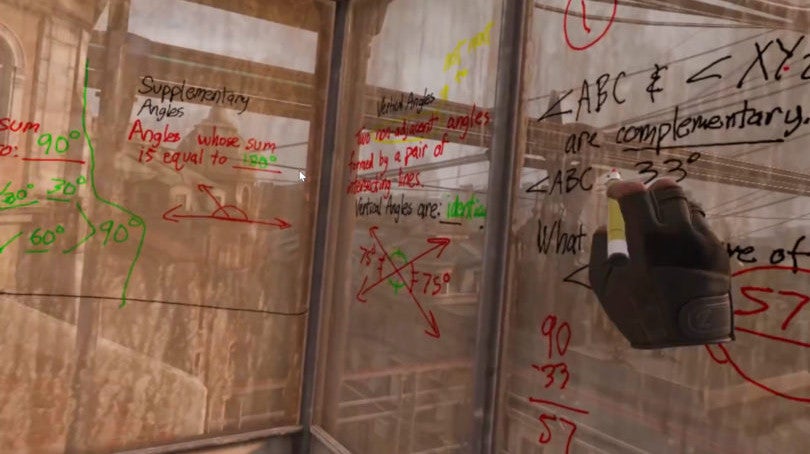 sum
o: 90°
60° 30°
60° > 90°
Supplementary
Angles
Angles whose sum
is equal to 180°
Vertical Angles
Two non-adjacent angles
formed by a pair of
intersecting lines.
Vertical Angles are: identical
75° 75°
1
∠ABC & ∠XYZ
are complementary.
∠ABC 33°
What ve of
∠ 57
90
-33
57